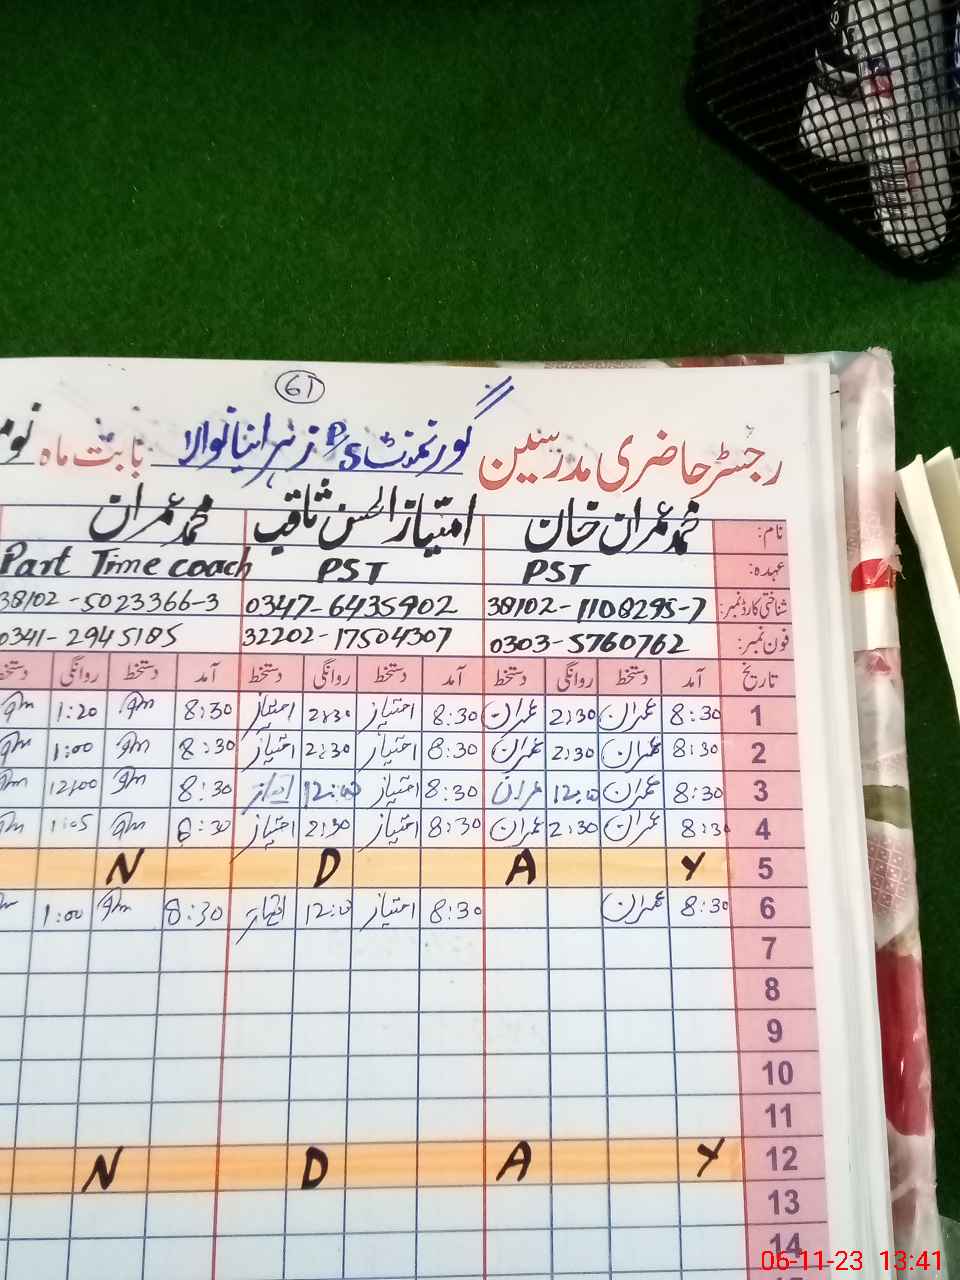 61
رجسٹر حاضری مدرسین گورنمنٹ P/S زہرانیانوالا بابت ماہ
نام: محمد عمران خان امتیاز الحسن ثاقب محمد عمران
عہدہ: PST PST Part Time coach
شناختی کارڈ نمبر: 38102-1108295-7 0347-6435902 38102-5023366-3
فون نمبر: 0303-5760762 32202-17504307 0341-2945185
تاریخ آمد دستخط روانگی دستخط آمد دستخط روانگی دستخط آمد دستخط روانگی
1 8:30 عمران 2:30 عمران 8:30 امتیاز 2:30 امتیاز 8:30 1:20
2 8:30 عمران 2:30 عمران 8:30 امتیاز 2:30 امتیاز 8:30 1:00
3 8:30 عمران 12:00 عمران 8:30 امتیاز 12:00 8:30 12:00
4 8:30 عمران 2:30 عمران 8:30 امتیاز 2:30 امتیاز 8:30
5 Y A D N
6 8:30 عمران 8:30 امتیاز 12:00 امتیاز 8:30 1:00
7
8
9
10
11
12 Y A D N
13
14
06-11-23 13:41